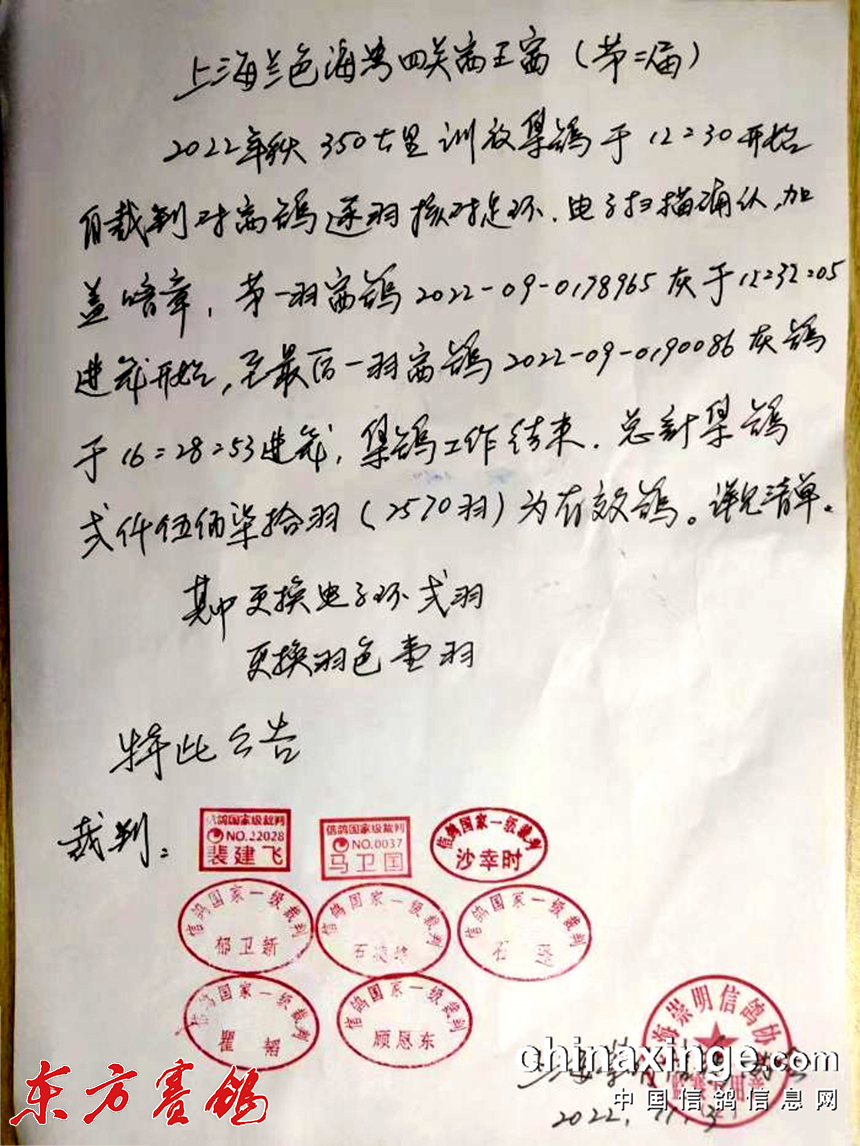 上海兰色海湾四关鸽王赛（第二届）
2022年秋350公里训放集鸽于12=30开始
由裁判对赛鸽逐羽核对足环、电子扫描确认、加
盖暗章，第一羽赛鸽2022-09-0178965灰于12=32=05
进笼开始，至最后一羽赛鸽2022-09-0190086灰鸽
于16=28=53进笼，集鸽工作结束。总计集鸽
弍仟伍佰柒拾羽（2570羽）为有效鸽。详见清单。
其中更换电子环弍羽
更换羽色壹羽
特此公告
裁判：
信鸽国家级裁判
NO.22028
裴建飞
信鸽国家级裁判
NO.0037
马卫国
信鸽国家一级裁判
沙幸时
信鸽国家一级裁判
郁卫新
信鸽国家一级裁判
石
信鸽国家一级裁判
石
信鸽国家一级裁判
瞿韬
信鸽国家一级裁判
顾恩东
海崇明信鸽协
上海
2022.11.3
chinaxinge.com
中国信鸽信息网
东方赛鸽